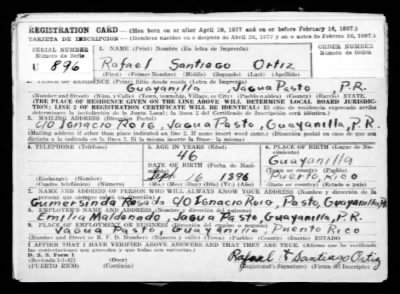 REGISTRATION CARD—(Men born on or after April 28, 1877 and on or before February 16, 1897.)
TARJETA DE INSCRIPCION—(Hombres nacidos en o después de Abril 28, 1877 y en o antes de Febrero 16, 1897.)
SERIAL NUMBER
Número de Serie
1. NAME (Print) Nombre (En letra de Imprenta)
ORDER NUMBER
Número de Orden
U 896
Rafael Santiago Ortiz
(First) (Primer Nombre) (Middle) (Segundo) (Last) (Apellido)
2. PLACE OF RESIDENCE (Print) Sitio donde reside (Letra de Imprenta)
Guayanilla, Jagua Pasto P.R.
(Number and Street) (Núm. y Calle) (Town, township, Village, or City) (Pueblo o aldea) (County) (Barrio) STATE
(THE PLACE OF RESIDENCE GIVEN ON THE LINE ABOVE WILL DETERMINE LOCAL BOARD JURISDICTION; LINE 2 OF REGISTRATION CERTIFICATE WILL BE IDENTICAL)
3. MAILING ADDRESS (Dirección Postal)
c/o Ignacio Jagua Pasto, Guayanilla, P.R.
(Mailing address if other than place indicated on line 2. If same insert word same)
4. TELEPHONE (Teléfono)
5. AGE IN YEARS (Edad)
46
DATE OF BIRTH (Fecha de Nacimiento)
Sept. 16 1896
(Mo.) (Day) (Yr.)
6. PLACE OF BIRTH (Lugar de Nacimiento)
Guayanilla
(Town or county) (Pueblo)
Puerto Rico
(State or country) (Estado o país)
(Exchange) (Number)
7. NAME AND ADDRESS OF PERSON WHO WILL ALWAYS KNOW YOUR ADDRESS
Gumersinda Rosado c/o Ignacio Pasto, Guayanilla
8. EMPLOYER'S NAME AND ADDRESS
Emilia Maldonado, Jagua Pasto, Guayanilla, P.R.
9. PLACE OF EMPLOYMENT OR BUSINESS
Jagua Pasto, Guayanilla, Puerto Rico
(Number and Street or R. F. D. Number) (Town) (County) (Barrio) ESTADO
I AFFIRM THAT I HAVE VERIFIED ABOVE ANSWERS AND THAT THEY ARE TRUE.
D. S. S. Form 1
(Revised 4-1-42)
(PUERTO RICO)
Rafael Santiago Ortiz
(Registrant's Signature) (Firma del Inscripto)